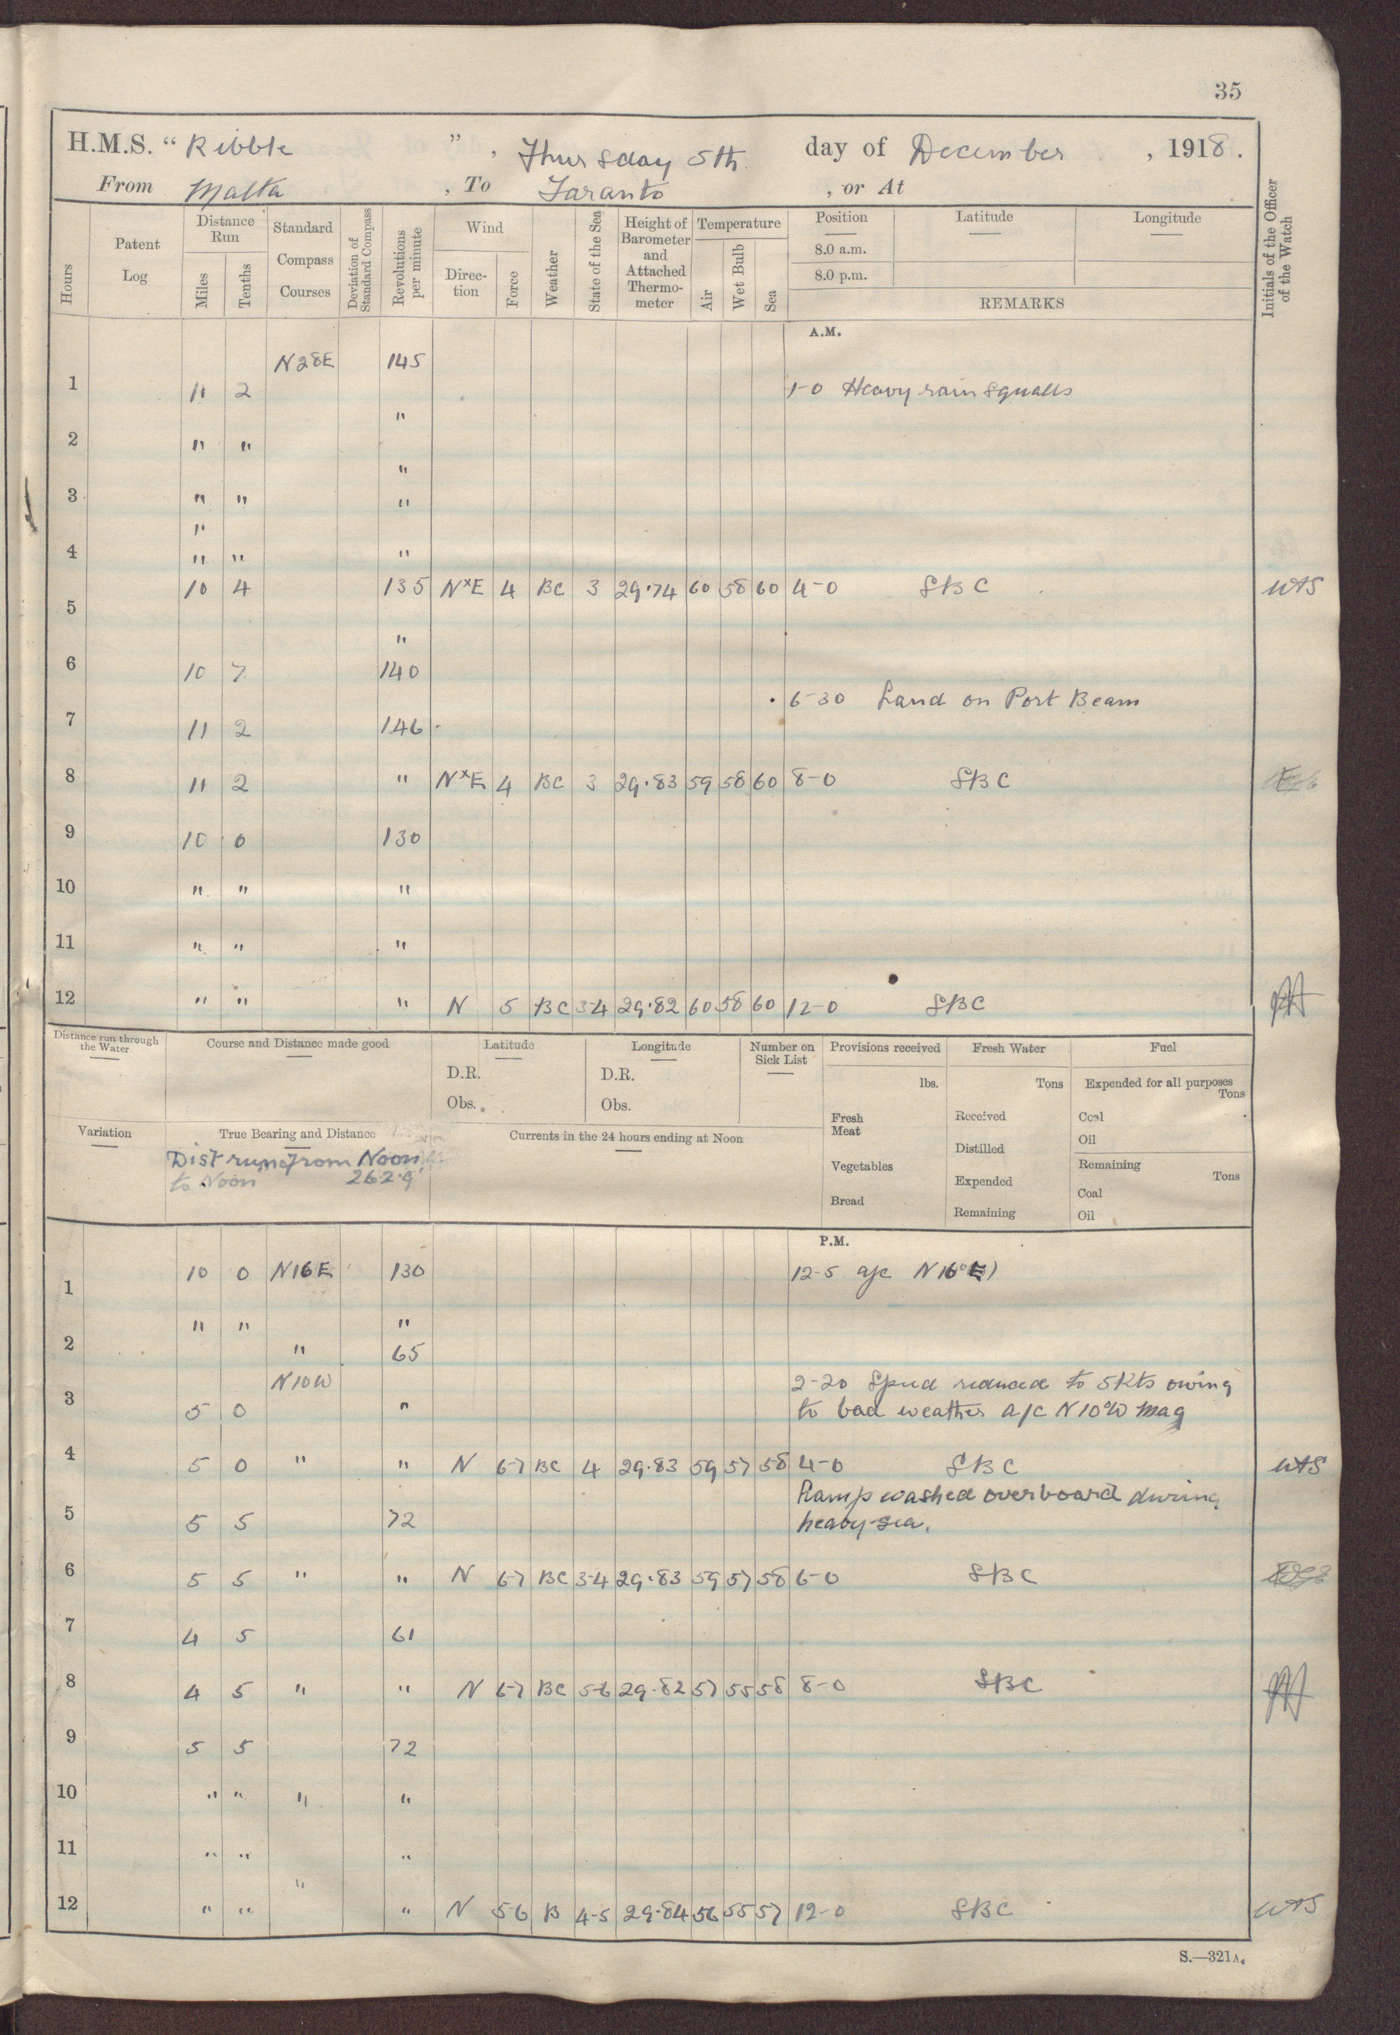 35
H.M.S. “ Ribble ”, Thursday 5th day of December, 1918.
From Malta, To Taranto, or At
Hours
Patent Log
Distance Run
Miles
Tenths
Standard Compass Courses
Deviation of Standard Compass
Revolutions per minute
Wind
Direction
Force
Weather
State of the Sea
Height of Barometer and Attached Thermometer
Temperature
Air
Wet Bulb
Sea
Position
Latitude
Longitude
8.0 a.m.
8.0 p.m.
REMARKS
Initials of the Officer of the Watch
A.M.
N28E 145
1 11 2 1-0 Heavy rain squalls
"
2 " "
"
3 " " "
"
4 " " "
10 4 135 NxE 4 BC 3 29.74 60 58 60 4-0 SBC WAS
5
"
6 10 7 140
6-30 Land on Port Beam
7 11 2 146
8 11 2 " NxE 4 BC 3 29.83 59 58 60 8-0 SBC
9 10 0 130
10 " " "
11 " " "
12 " " " N 5 BC 3-4 29.82 60 58 60 12-0 SBC
Distance run through the Water
Course and Distance made good
Latitude
D.R.
Obs.
Longitude
D.R.
Obs.
Number on Sick List
Provisions received
lbs.
Fresh Meat
Vegetables
Bread
Fresh Water
Tons
Received
Distilled
Expended
Remaining
Fuel
Expended for all purposes
Tons
Coal
Oil
Remaining
Tons
Coal
Oil
Variation
True Bearing and Distance
Currents in the 24 hours ending at Noon
Dist run from Noon
to Noon 262.9'
P.M.
1 10 0 N16E 130 12-5 a/c N16°E)
" " "
2 " 65
N10W 2-20 Speed reduced to 5Kts owing
3 5 0 " to bad weather a/c N10°W mag
4 5 0 " " N 6-7 BC 4 29.83 59 57 58 4-0 SBC WAS
Lamp washed overboard during
5 5 5 72 heavy sea.
6 5 5 " " N 6-7 BC 3-4 29.83 59 57 58 6-0 SBC
7 4 5 61
8 4 5 " " N 6-7 BC 5-6 29.82 57 55 58 8-0 SBC
9 5 5 72
10 " " " "
11 " " "
"
12 " " " N 5-6 B 4-5 29.84 56 55 57 12-0 SBC WAS
S.—321A.